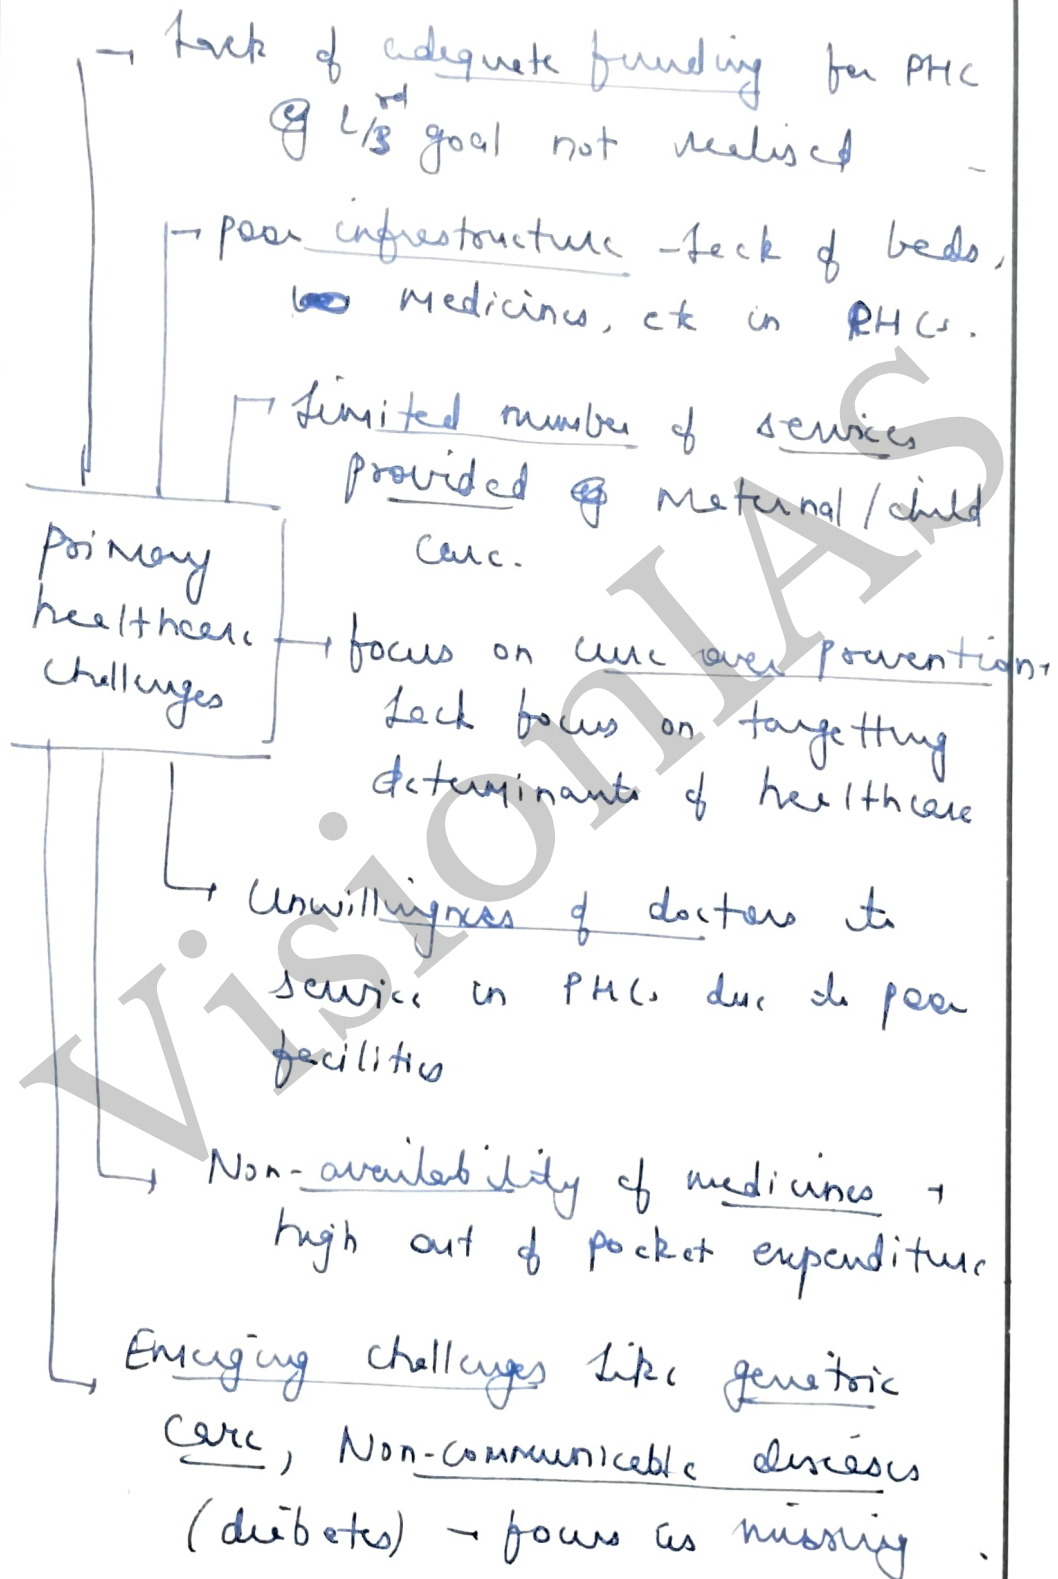 Lack of adequate funding for PHC
eg 2/3rd goal not realised
Poor infrastructure - Lack of beds,
medicines, etc in PHCs.
Limited number of services
provided eg Maternal/child
care.
Primary
healthcare
challenges
focus on cure over prevention,
Lack focus on targetting
determinants of healthcare
Unwillingness of doctors to
service in PHCs due to poor
facilities
Non-availability of medicines →
high out of pocket expenditure
Emerging challenges like genetric
care, Non-communicable diseases
(diabetes) → focus is missing.
VisionIAS